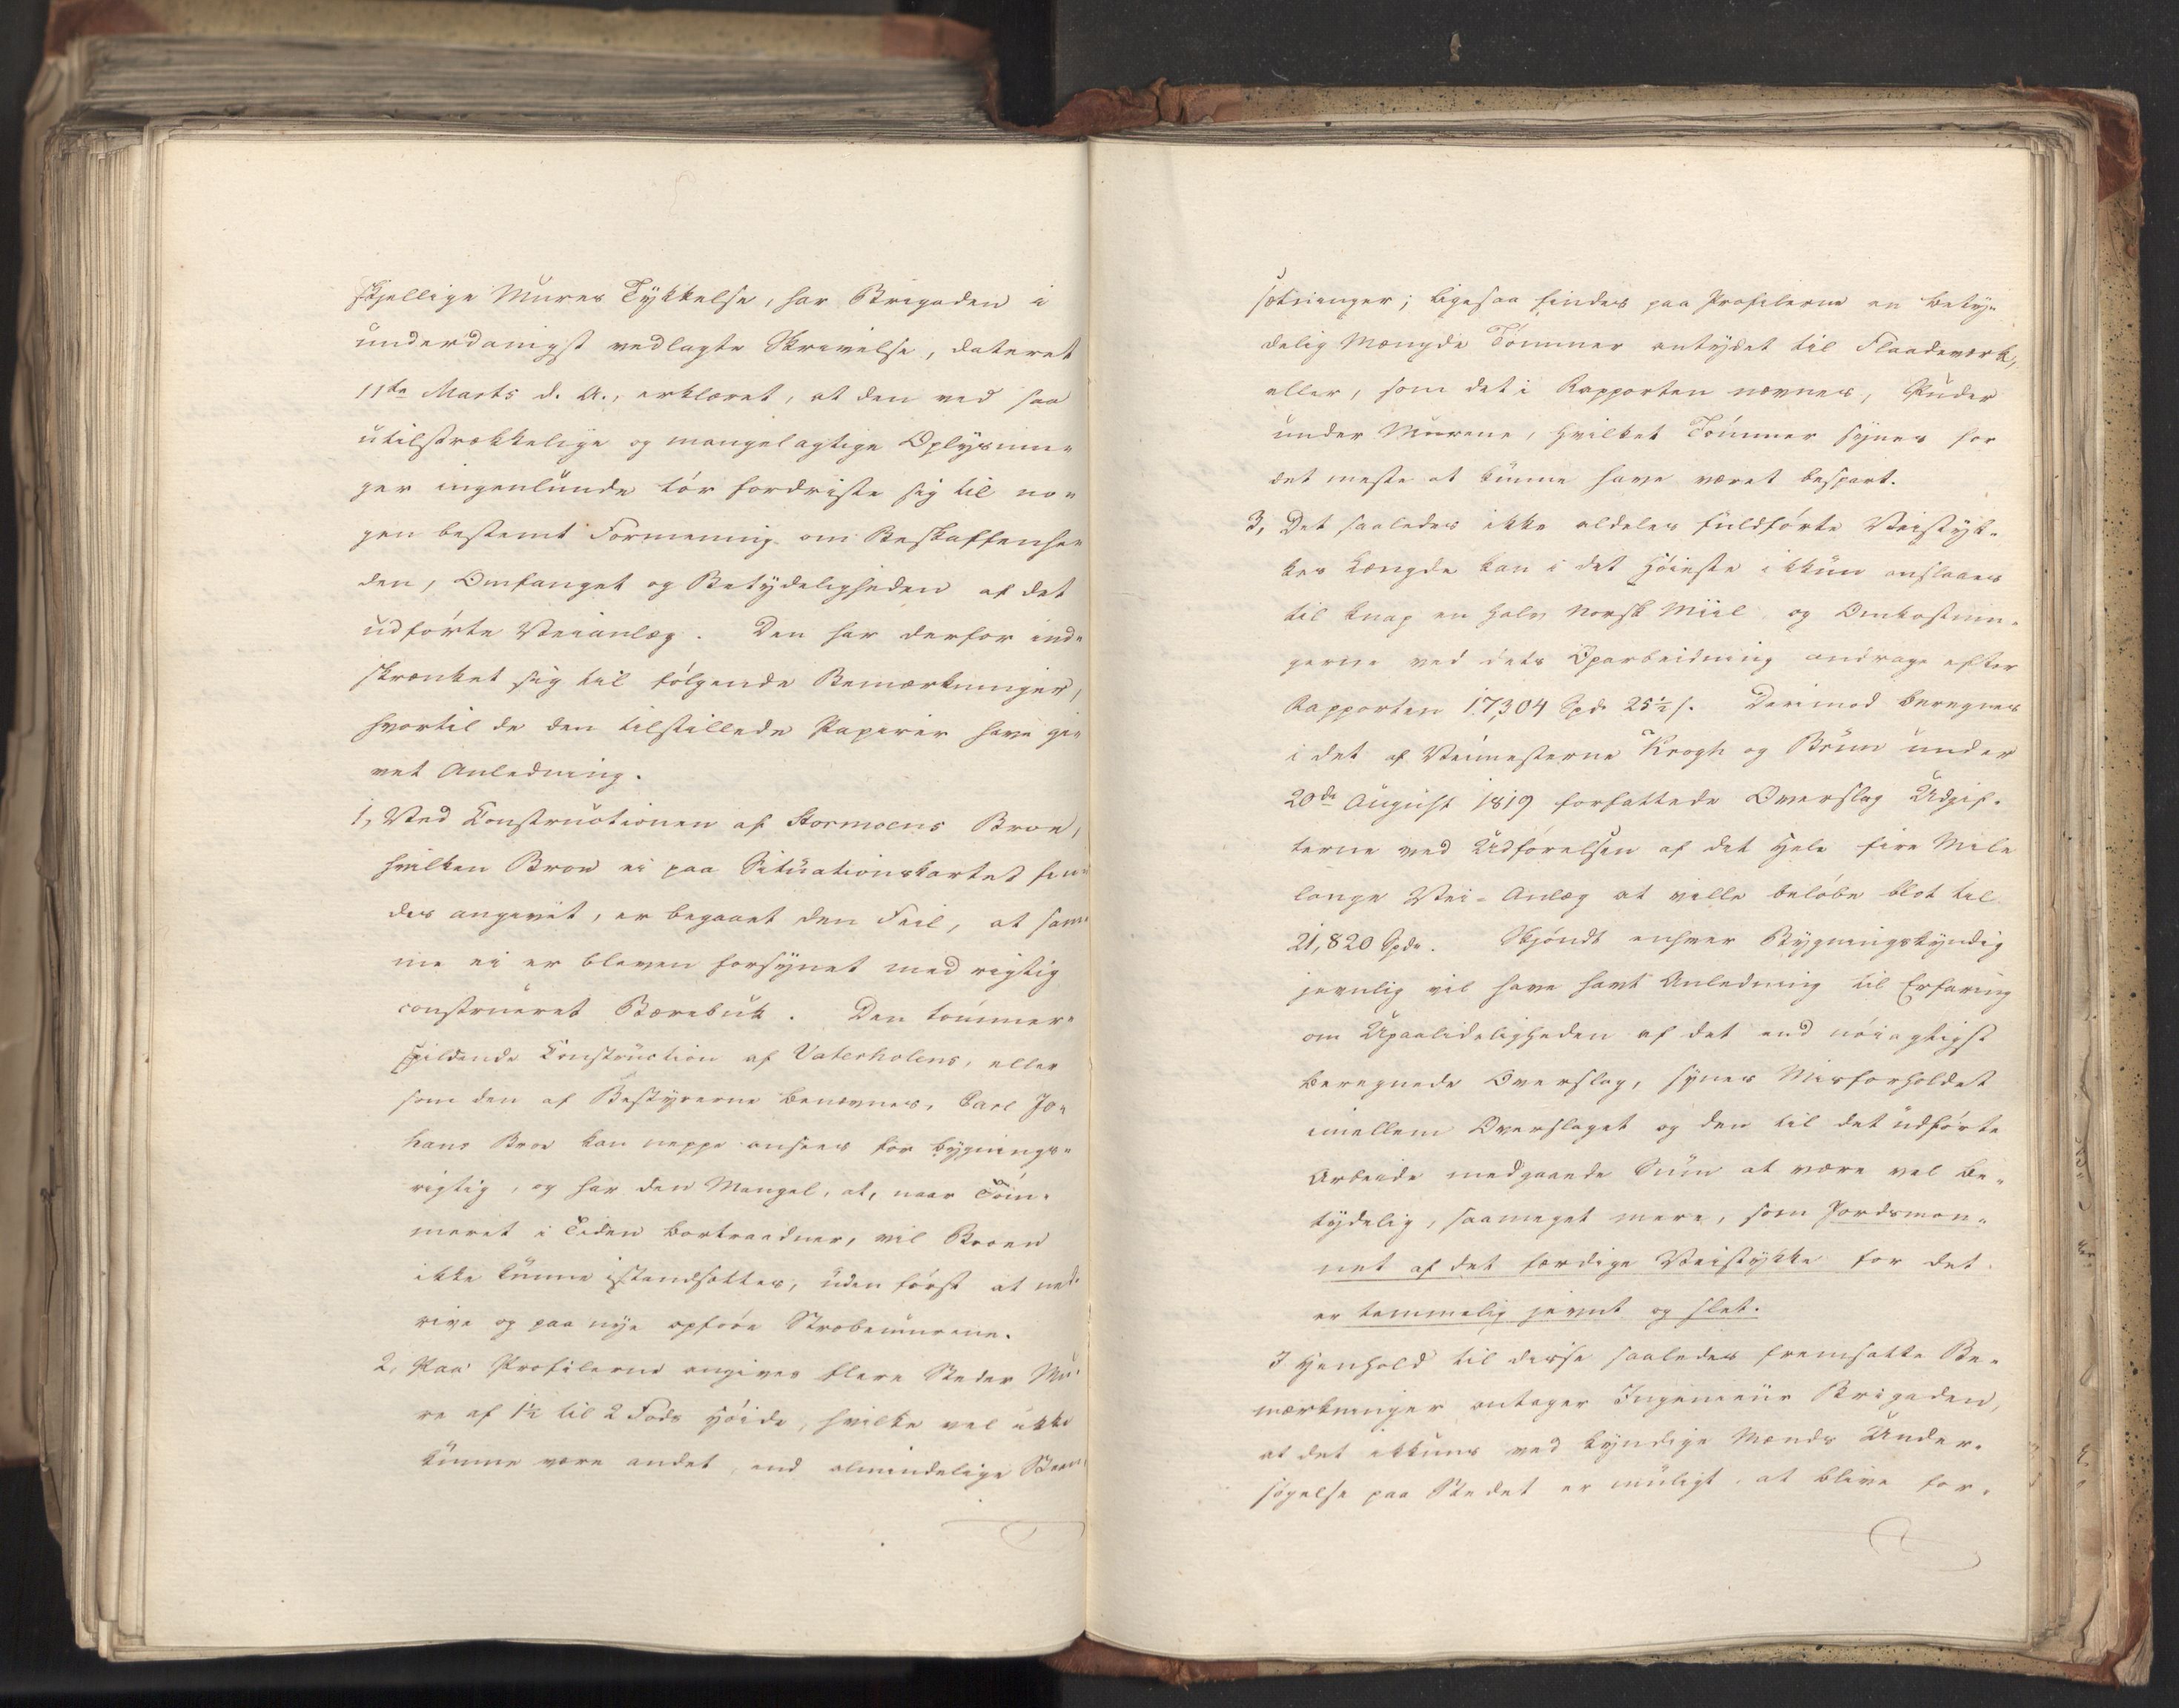 skjellige Mures Tykkelse, har Brigaden i
underdanigst vedlagte Skrivelse, dateret
11te Marts d. A., erklæret, at den ved saa
utilstrækkelige og mangelagtige Oplysnin-
ger ingenlunde tór fordriste sig til no-
gen bestemt Formening om Beskaffenhe-
den, Omfanget og Betydeligheden af det
udfórte Veianlæg. Den har derfor ind-
skrænket sig til fólgende Bemærkninger,
hvortil de den tilstillede Papirer have gi-
vet Anledning.
1, Ved Constructionen af Stormoens Broe,
hvilken Broe ei paa Situationskartet fin-
des angivet, er begaaet den Feil, at sam-
me ei er bleven forsynet med rigtig
construeret Bærebuk. Den tómmer-
spildende Construction af Vaterholens, eller
som den af Bestyrerne benævnes, Carl Jo-
hans Broe kan neppe ansees for bygnings-
rigtig, og har den Mangel, at, naar Tóm-
meret i Tiden bortraadner, vil Broen
ikke kunne istandsættes, uden fórst at ned-
rive og paa nye opfóre Stræbemurene.
2, Paa Profilerne angives flere Steder Mu-
re af 1½ til 2 Fods Hóide, hvilke vel ikke
kunne være andet, end almindelige Steen-
sætninger; ligesaa findes paa Profilerne en bety-
delig Mængde Tómmer antydet til Flaadeværk,
eller, som det i Rapporten nævnes, Puder
under Murene, hvilket Tómmer synes for
det meste at kunne have været bespart.
3, Det saaledes ikke aldeles fuldfórte Veistyk-
kes Længde kan i det Hóieste ikkun anslaaes
til knap en halv norsk Miil og Omkostnin-
gerne ved dets Oparbeidning andrage efter
Rapporten 17,304 Spd. 25½ s. Derimod beregnes
i det af Veimesterne Krogh og Brun under
20de August 1819 forfattede Overslag Udgif-
terne ved Udfórelsen af det hele fire Mile
lange Vei-Anlæg at ville belóbe blot til
21,820 Spd. Skjóndt enhver Bygningskyndig
jevnlig vil have havt Anledning til Erfaring
om Upaalideligheden af det end nóiagtigst
beregnede Overslag, synes Misforholdet
imellem Overslaget og den til det udfórte
Arbeide medgaaende Sum at være vel be-
tydelig, saameget mere, som Jordsmon-
net af det færdige Veistykke for det
er temmelig jevnt og slet.
I Henhold til disse saaledes fremsatte Be-
mærkninger antager Ingenieur Brigaden,
at det ikkuns ved kyndige Mænds Under-
sógelse paa Stedet er muligt at blive for-